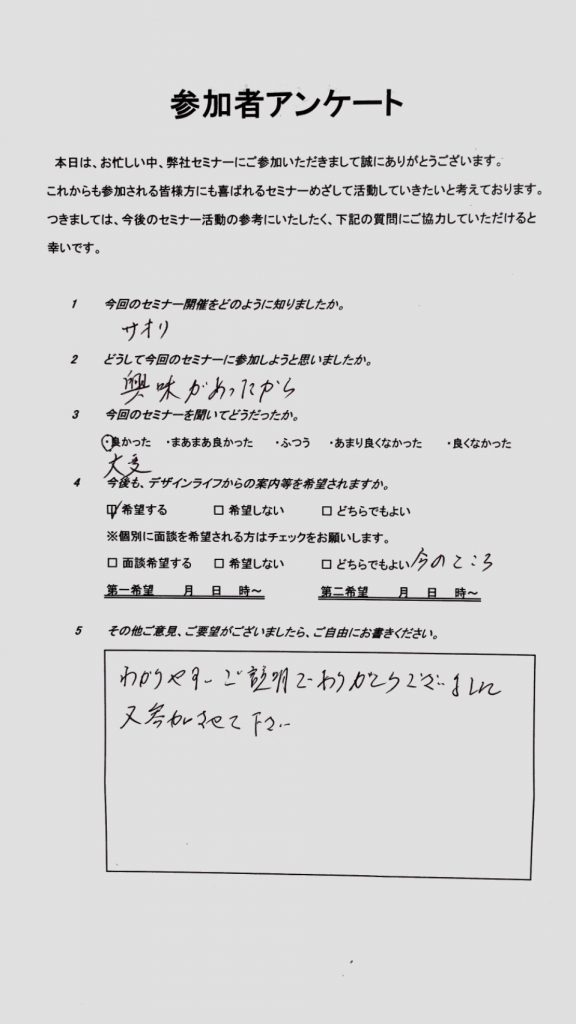 参加者アンケート
本日は、お忙しい中、弊社セミナーにご参加いただきまして誠にありがとうございます。
これからも参加される皆様方にも喜ばれるセミナーめざして活動していきたいと考えております。
つきましては、今後のセミナー活動の参考にいたしたく、下記の質問にご協力していただけると
幸いです。
1 今回のセミナー開催をどのように知りましたか。
サオリ
2 どうして今回のセミナーに参加しようと思いましたか。
興味があったから
3 今回のセミナーを聞いてどうだったか。
・良かった ・まあまあ良かった ・ふつう ・あまり良くなかった ・良くなかった
大変
4 今後も、デザインライフからの案内等を希望されますか。
☑ 希望する □ 希望しない □ どちらでもよい
※個別に面談を希望される方はチェックをお願いします。
□ 面談希望する □ 希望しない □ どちらでもよい 今のところ
第一希望 月 日 時～ 第二希望 月 日 時～
5 その他ご意見、ご要望がございましたら、ご自由にお書きください。
わかりやすいご説明でありがとうございました
又参加させて下さい